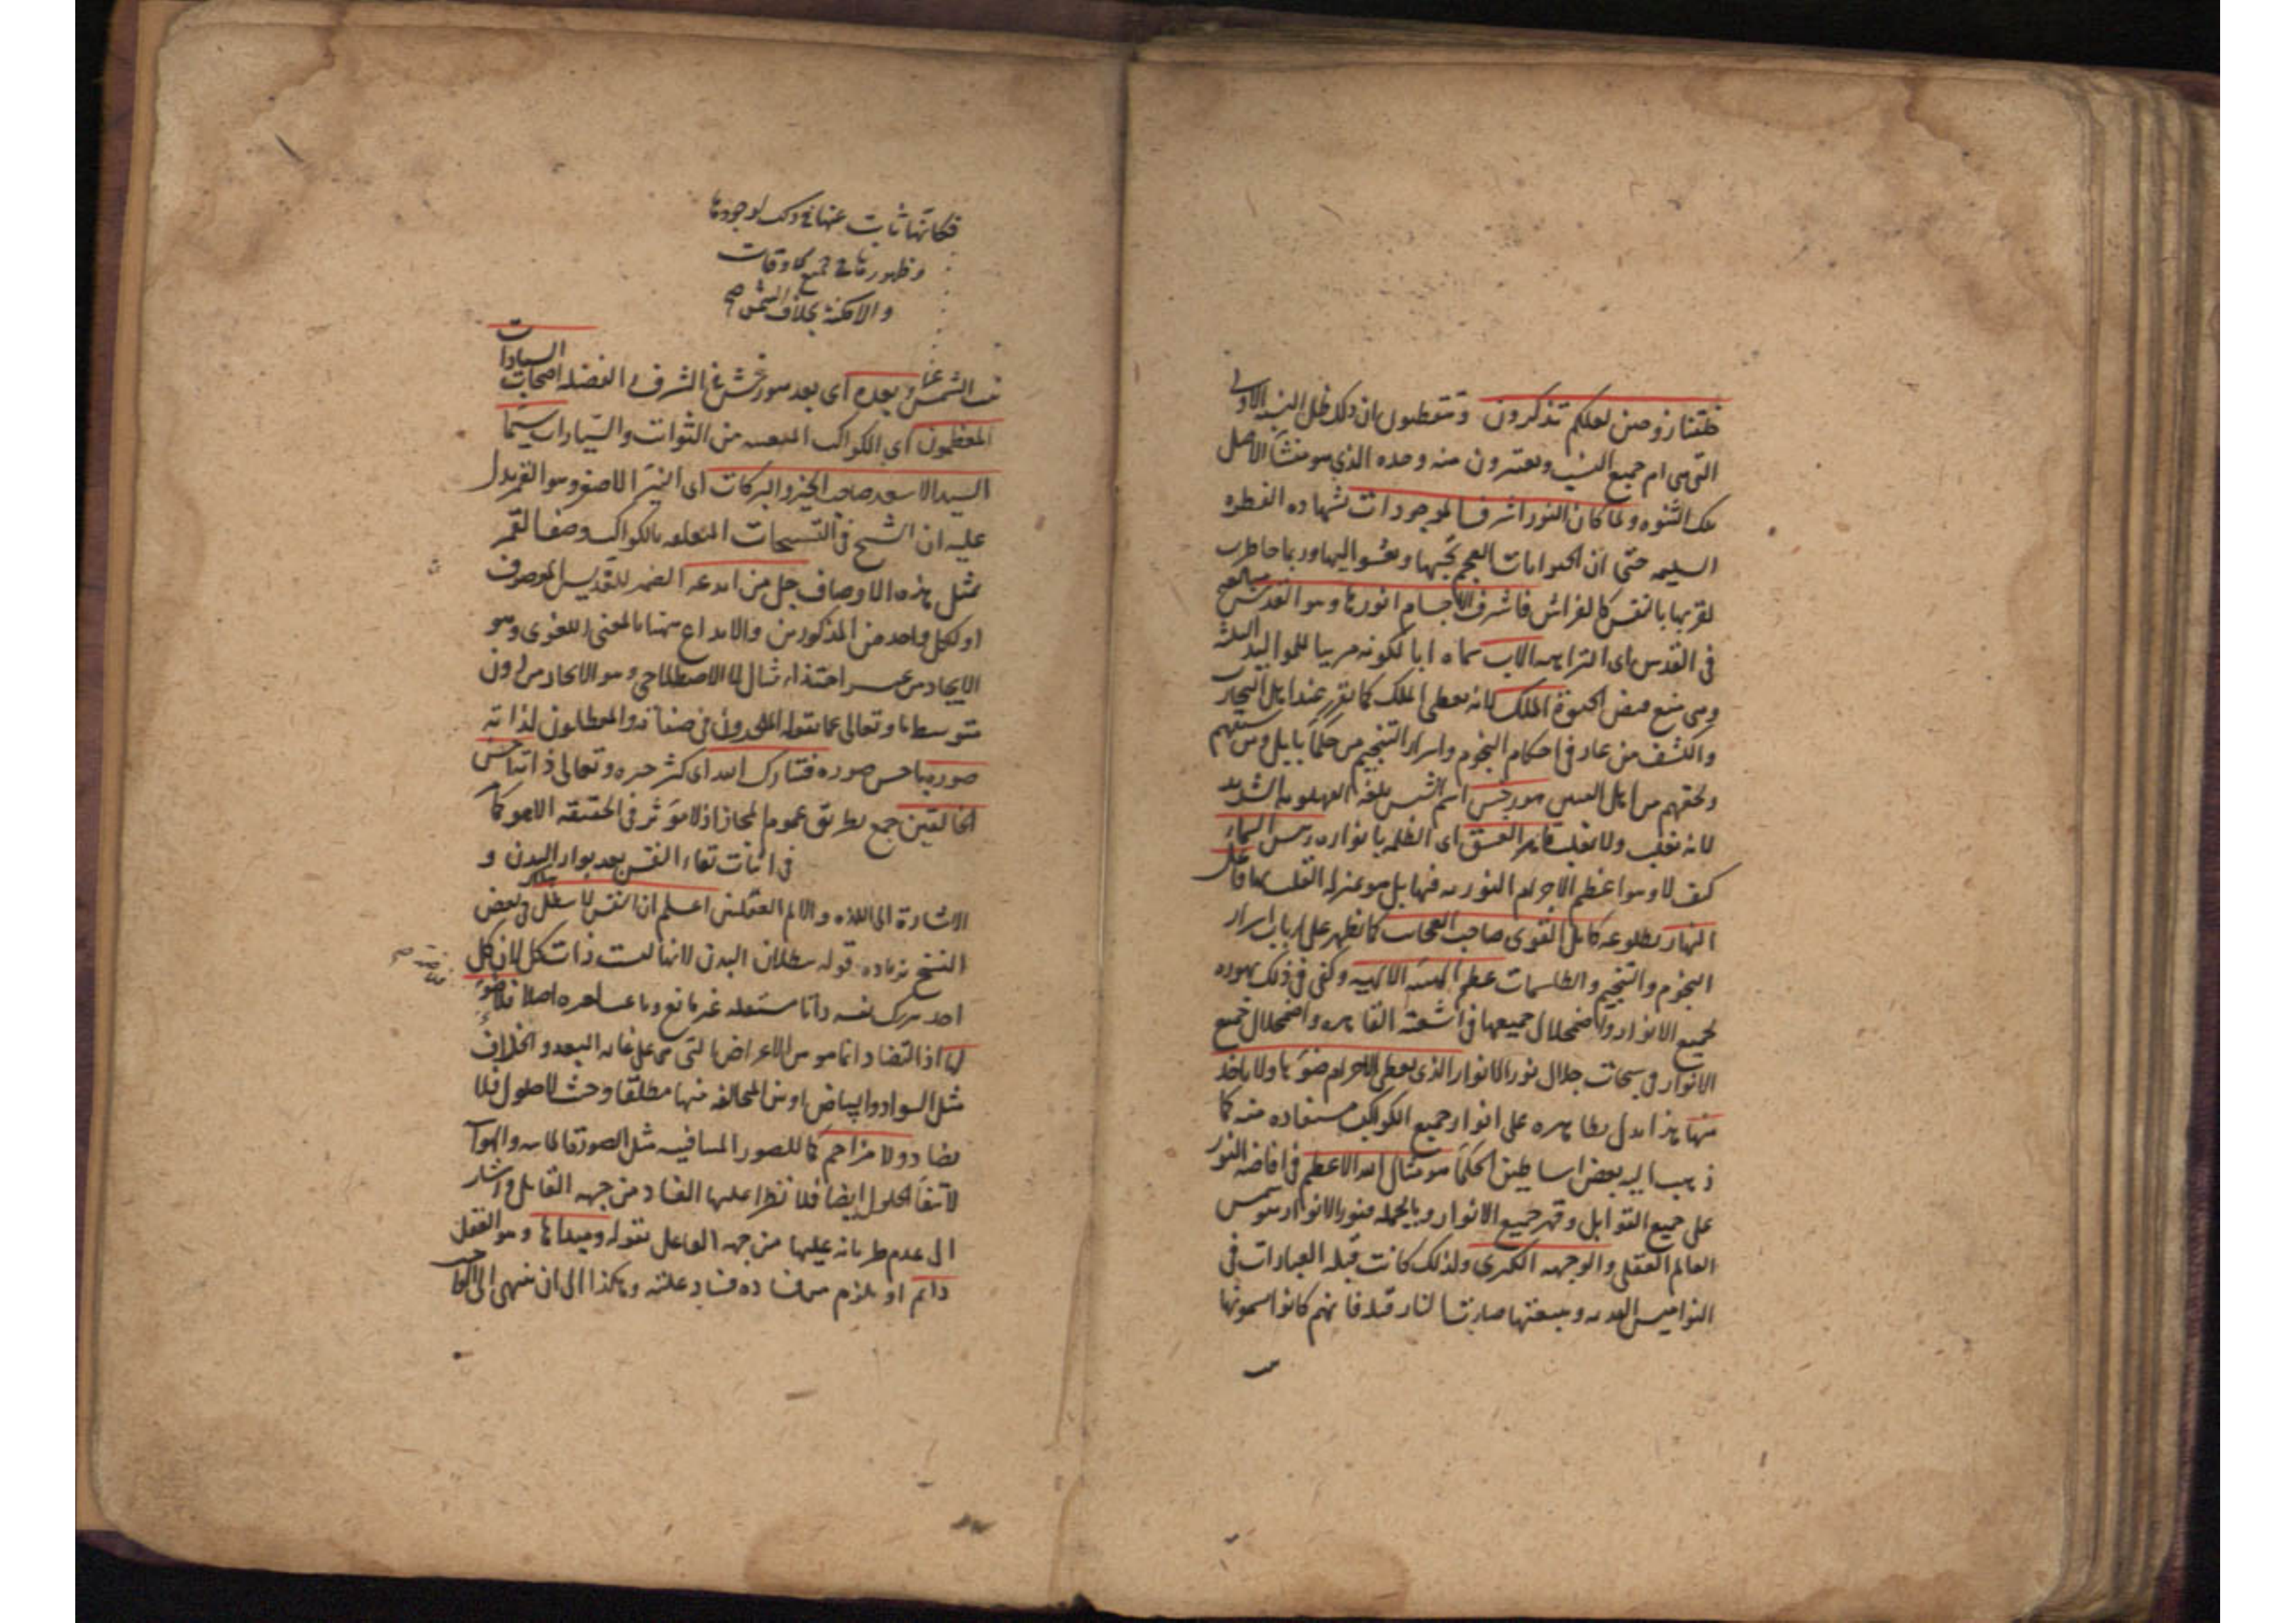 خلقنا زوجين لعلكم تذكرون وتتعظون ان ذلك ظل النسبة الاولى
التى هى ام جميع النسب وتعتبرون منه وحده الذى هو منشأ الاصل
تلك الثنوه ولما كان النور اشرف الموجودات بشهاده الفطره
السليمه حتى ان الحيوانات العجم تحبها وتعشو اليها وربما خاطرت
لقربها بالنفس كالفراش فاشرف الاجسام انورها وهو القديس
فى القدس اى النزاهه الاب سماه ابا لكونه مربيا للمواليد الثلاثة
وهى منبع فيض الحيوة الملك لانه يعطى الملك كما تقرر عند اهل التجارب
والكشف من عاد فى احكام النجوم واسرار التنجيم من حكما بابل ومن سبقهم
ولحقهم من اهل الفرس هورخش اسم الشمس بلغة الفهلويه الشديد
لانه يغلب ولا يغلب قاهر الغسق اى الظلمه بانواره رئيس السماء
كيف لا وهو اعظم الاجرام النوريه فيها بل هو بمنزله القلب لها فاعل
النهار بطلوعه كامل القوى صاحب العجائب كما يظهر على ارباب اسرار
النجوم والتنجيم والطلسمات عظيم الهيئه الالهيه وكفى فى ذلك بهوره
لجميع الانوار واضمحلال جميعها فى اشعته القاهره واضمحلال جميع
الانوار فى سبحات جلال نور الانوار الذى يعطى الاجرام ضوءها ولا ياخذ
منها هذا يدل بظاهره على انوار جميع الكواكب مستفاده منه كما
ذهب اليه بعض اساطين الحكما هو مثال الله الاعظم فى افاضه النور
على جميع القوابل وقهر جميع الانوار وبالجمله فنور الانوار شمس
العالم العقلى والوجهه الكبرى ولذلك كانت قبله العبادات فى
النواميس القديمه وبتبعيتها صارت النار قبله فانهم كانوا
فكانها ثابت عنها فى ذلك لوجودها
وظهورها فى جميع الاوقات
والامكنة بخلاف الشمس صح
الشمس وبعده اى بعد هورخش فى الشرف والفضله اصحاب السيادات
المعظمون اى الكواكب من الثوابت والسيارات سيما
السيد الاسعد صاحب الخير والبركات اى النير الاصغر وهو القمر يدل
عليه ان الشيخ فى التسبيحات المتعلقه بالكواكب وصف القمر
بمثل هذه الاوصاف جل من ابدعه الضمير للقديس الموصوف
او لكل واحد من المذكورين والابداع ههنا بالمعنى اللغوى وهو
الايجاد من غير احتذاء مثال لا الاصطلاحى وهو الايجاد من دون
متوسط ما وتعالى عما يقوله الملحدون فى صفاته والمعطلون لذاته
صوره باحسن صوره فتبارك الله اى كثر خيره وتعالى ذاته احسن
الخالقين جمع بطريق عموم المجاز اذ لا مؤثر فى الحقيقه الا هو كما
فى اثبات بقاء النفس بعد بوار البدن و
الاشارة الى اللذه والالم العقليين اعلم ان النفس لا تبطل فى بعض
النسخ بزياده قوله ببطلان البدن لانها ليست ذات محل لان كل
احد يدرك نفسه ذاتا مستقله غير تابع وناعت لغيره اصلا فلا ضد
لها اذ التضاد انما هو من الاعراض التى هى على غايه البعد والخلاف
مثل السواد والبياض او بين المتخالفه منها مطلقا وحيث لا حلول فلا
تضاد ولا مزاحم كما للصور المتنافيه مثل الصورة المائيه والهوائيه
لانتفاء الحلول ايضا فلا يتطرأ عليها الفساد من جهه القابل واشار
الى عدم طريانه عليها من جهه الفاعل بقوله ومبداها وهو العقل
دائم اذ يلزم من فساده فساد علته وهكذا الى ان ينتهى الى الواجب